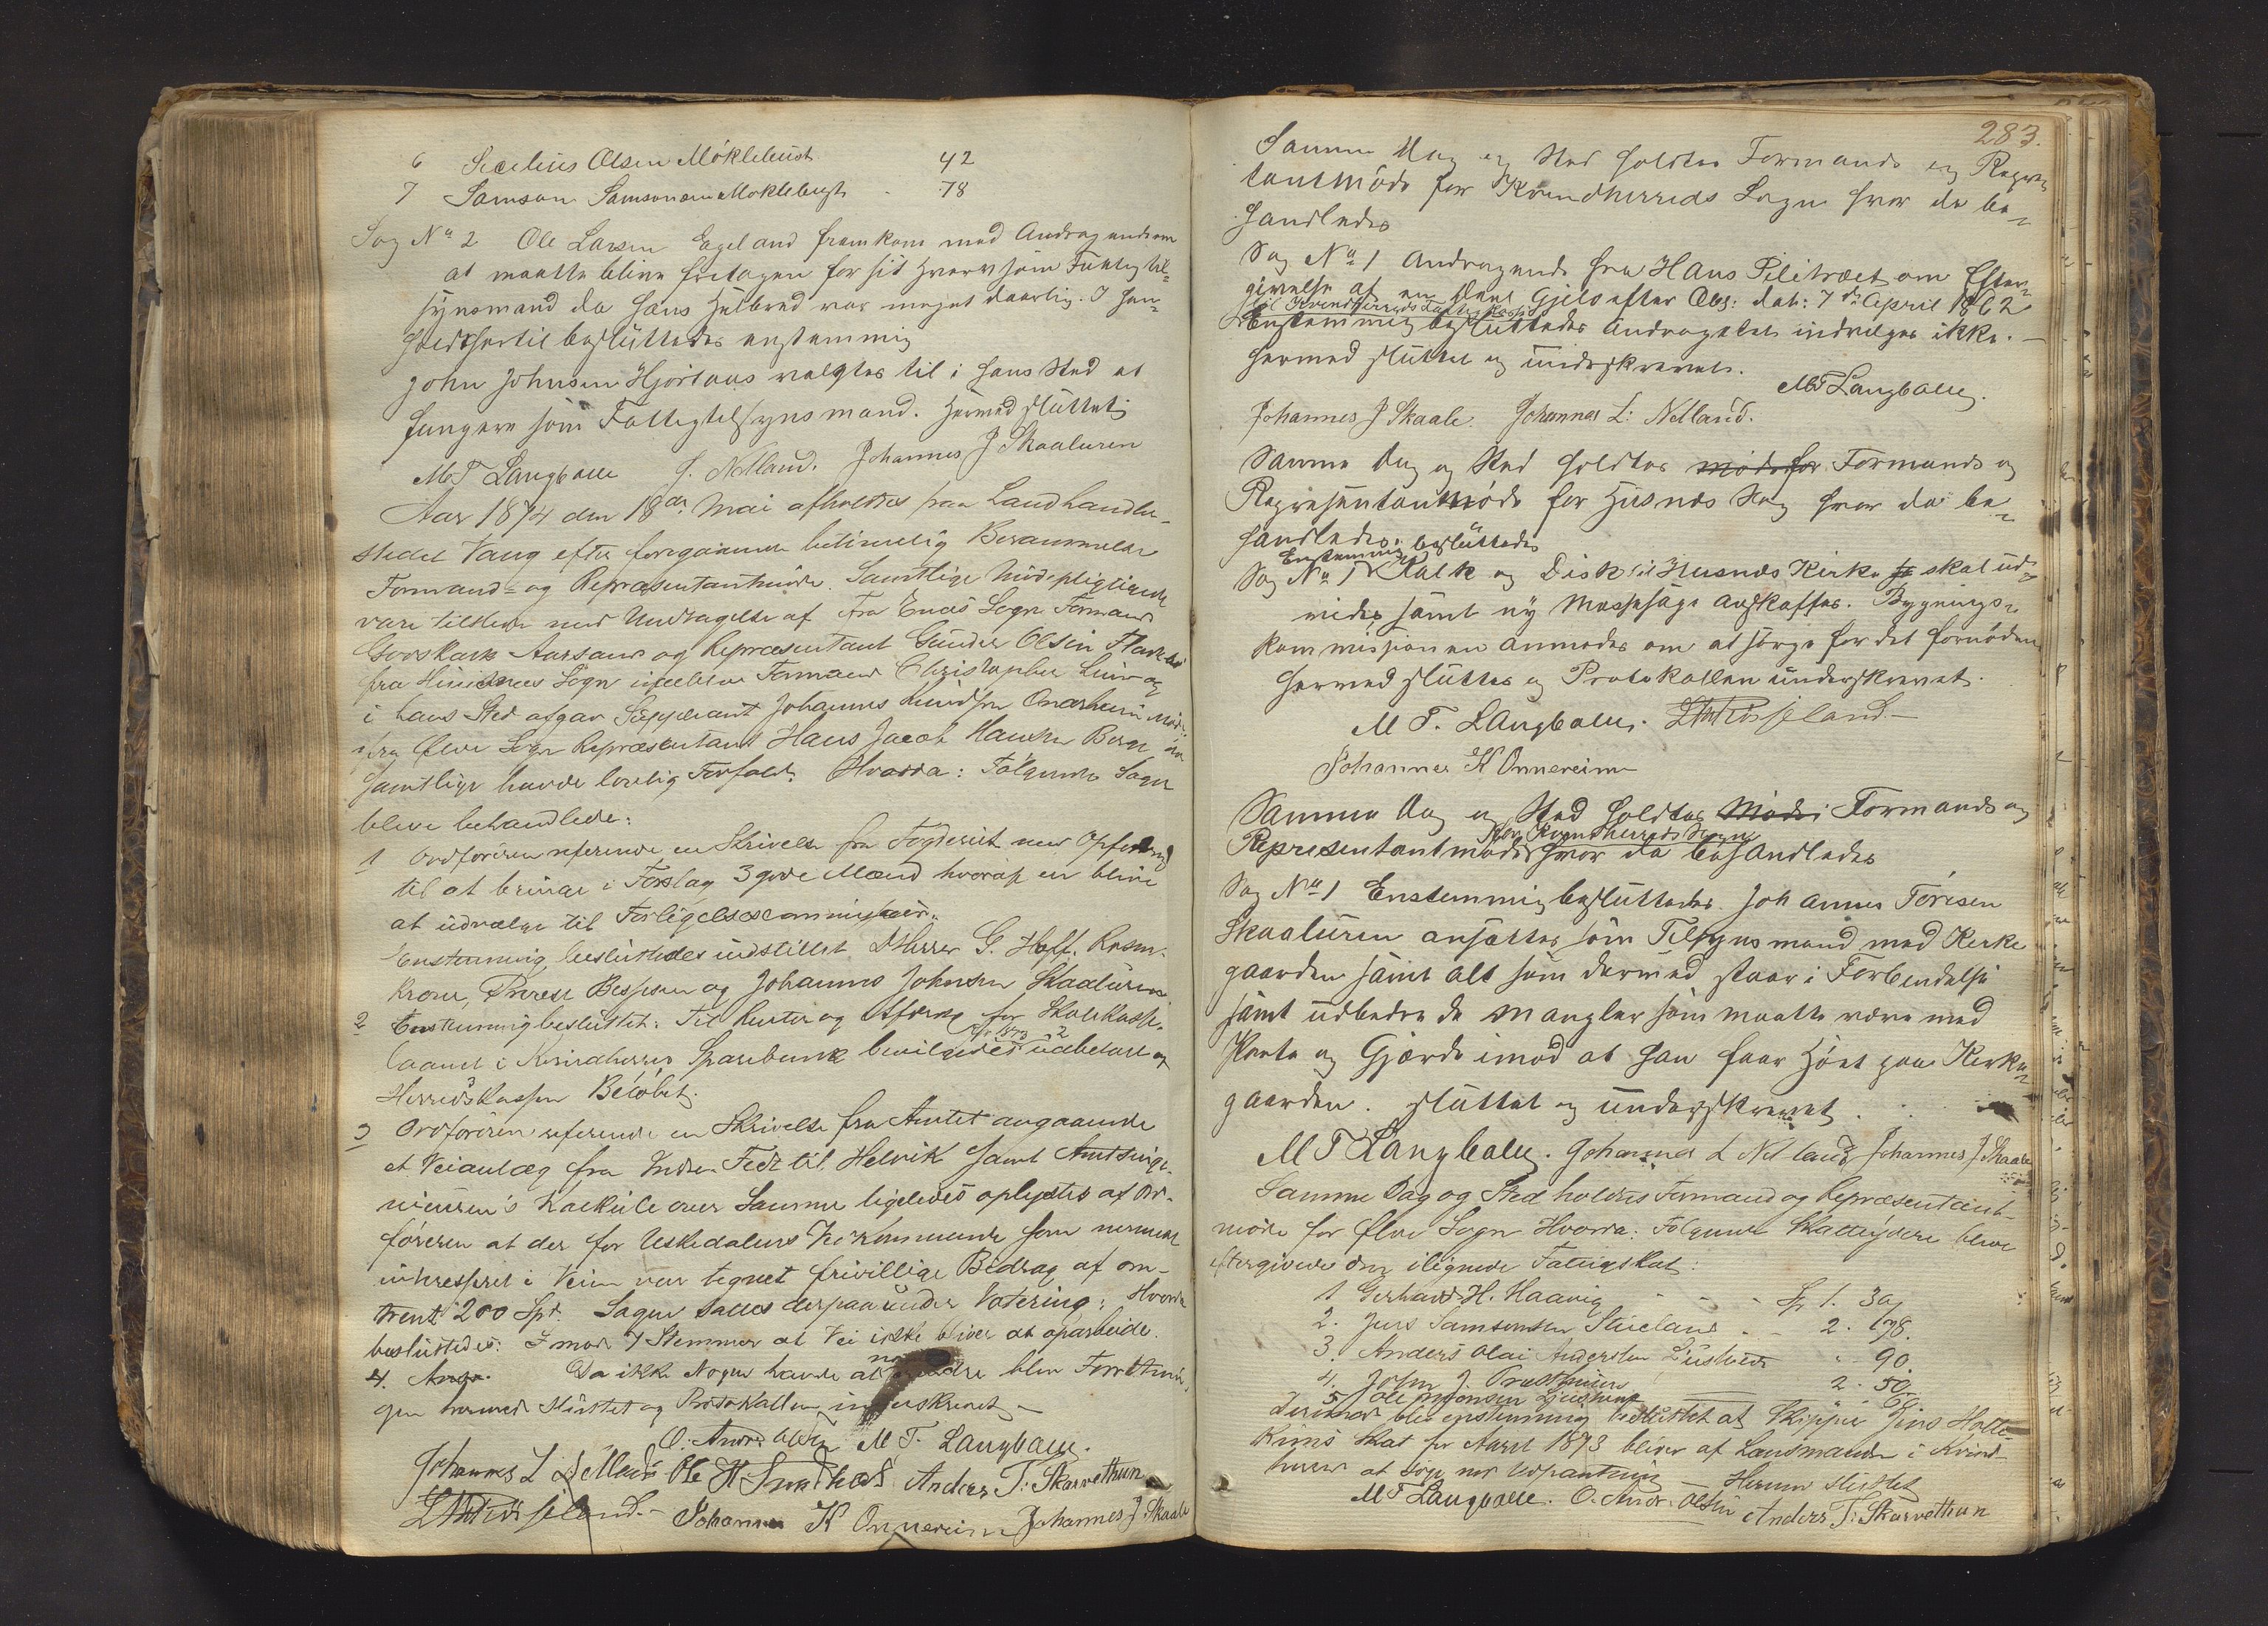 6 Sicelius Olsen Møklebust 42
7 Samson Samsonsen Moklebugst - 78
Sag No 2 Ole Larsen Egeland fremkom med Andragende om
at maatte blive fretagen for sit Hverv som Fattigtil=
synsmand da hans Helbred var meget daarlig. I Hen=
hold hertil besluttedes enstemmig
John Johnsen Hjortaas valgtes til i hans Sted at
fungere som Fattigtilsynsmand. Hermed sluttet
M T Langballe J. Netland. Johannes J Skaaluren
Aar 1874 den 18de Mai afholdtes paa Landhandler-
stedet Vang efter foregaaende betimelig Berammelse
Formand= og Repræsentantmøde. Samtlige mødepligtige
vare tilstede med Undtagelse af fra Enæs Sogn Formand
Aarsand og Repræsentant Gunder Olsen
fra Husnæs Sogn Formand Christopher Lund og
i hans Sted afgav Suppleant Johannes Knudsen Onarheim Møde
fra Ølve Sogn Repræsentant Hans Jacob Hansen Berge da
samtlige havde lovlig Forfald. Hvorda: Følgende Sager
bleve behandlede:
1 Ordføreren refererede en Skrivelse fra Fogderiet med Opfordring
til at bringe i Forslag 3 gode Mænd hvoraf en bliver
at udvælge til Forligelsescommissair.
Enstemmig besluttedes indstillet D'Herrer G. Hoff, Rosen-
krone, Besesen og Johannes Johnsen Skaaluren
2 Enstemmig besluttet: Til Renter og Afdrag for Skolekasse-
laanet i Kvindherreds Sparebank bevilgedes for 1873 udbetalt af
Herredskassen Beløbet.
3 Ordføreren refererede en Skrivelse fra Amtet angaaende
et Veianlæg fra Indre Fedt til Helvik samt Amtsinge-
nieuren's Kalkule over Samme ligeledes oplystes af Ord-
føreren at der for Uskedalens Vedkommende som nærmest
interesseret i Veien var tegnet frivillige Bidrag af om-
trent 200 Spd. Sagen sattes derpaa under Votering: Hvorda
besluttedes: Imod 7 Stemmer at Vei ikke bliver at oparbeide.
4. Da ikke Nogen havde at blev Forretnin-
gen hermed sluttet og Protokallen underskrevet -
O. Andr. Olsen M T. Langballe.
Johannes L Netland Ole H Anders T: Skarvethun
Johannes K Onnereim Johannes J Skaale
283.
Samme Dag og Sted holdtes Formands og Repræs
tantmøde for Kvindherreds Sogn hvor da be=
handledes
Sag No 1 Andragende fra Hans Piletræet om Efter=
givelse af en Deel Gjeld efter Obl: dat: 7de April 1862
til Kvindherreds Fattigkasse
Enstemmig besluttedes Andragelsen indvilges ikke. -
Hermed sluttet og underskrevet.
M T Langballe.
Johannes J Skaale. Johannes L: Netland.
Samme Dag og Sted holdtes Møde for Formands og
Repræsentantmøde for Husnæs Sog hvor da be=
handledes.
Enstemmig besluttedes
Sag No 1 Kalk og Disk til Husnæs Kirke skal ud=
vides samt ny Messesage anskaffes. Bygnings=
kommissionen anmodes om at sørge for det fornødne
Hermed sluttes og Protokollen underskrevet.
M T. Langballe.
Johannes K Onnereim
Samme Dag og Sted holdtes Møde Formands og
for Kvindherreds Sogn
Repræsentantmøde hvor da behandledes
Sag No 1 Enstemmig besluttedes Johannes Torisen
Skaaluren ansættes som Tilsynsmand med Kirke
gaarden samt alt som dermed staar i Forbindelse
samt udbedre de Mangler som maatte være med
Porte og Gjærde imod at han faar Høet paa Kirke=
gaarden. sluttet og underskrevet.
M T Langballe. Johannes L Netland Johannes J Skaale
Samme Dag og Sted holdtes Formand og Repræsentant-
møde for Ølve Sogn Hvorda: Følgende Skatteydere bleve
eftergivede den ilignede Fattigskat:
1 Gerhard H. Haavig - - - Sp 1. 30
2. Jens Samsonsen - - 2. 198.
3. Anders Olai Andersen " 90.
4. John J. 2. 50.
5 Ole
Derimod blev enstemmig besluttet at Skipper Jens
Skat for Aaret 1873 bliver af Lensmanden i Kvind-
herred at søge ved Udpantning - Hermed sluttet
M T Langballe. O. Andr: Olsen Anders T: Skarvethun